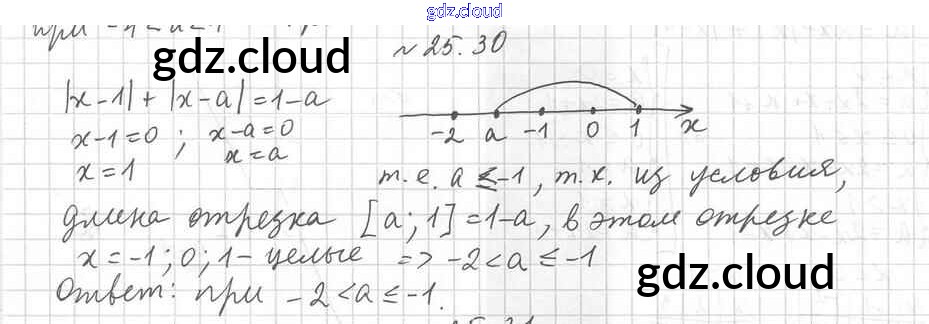 gdz.cloud
при
№ 25.30
gdz.cloud
|x-1| + |x-a| = 1-a
x-1=0 ; x-a=0
x=1 x=a
-2 a -1 0 1 x
т.е. a ≤ -1, т.к. из условия,
длина отрезка [a; 1] = 1-a, в этом отрезке
x=-1; 0; 1 - целые => -2 < a ≤ -1
gdz.cloud
Ответ: при -2 < a ≤ -1.